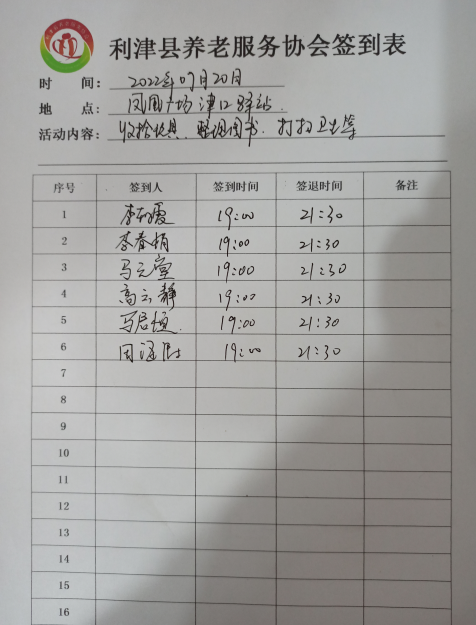 利津县养老服务协会签到表
时 间: 2022年07月20日
地 点: 凤凰广场津口驿站.
活动内容: 收拾玩具、整理图书、打扫卫生等
序号 签到人 签到时间 签退时间 备注
1 李 19:00 21:30
2 李春娟 19:00 21:30
3 马云堂 19:00 21:30
4 高云静 19:00 21:30
5 马君恒 19:00 21:30
6 周 19:00 21:30
7
8
9
10
11
12
13
14
15
16